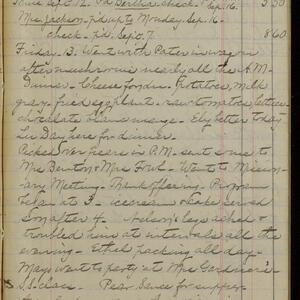 Thurs Sept 12. Pd Bertha check. Sep. 16. 5 50
Mrs Jackson, pd up to Monday. Sep. 16 -
check. pd. Sept. 7. 8 60
Friday. 13. Went with Pater in wagon
after mushrooms nearly all the A.M.
Dinner. Cheese fondu. Potatoes, Milk
gravy, fried egg plant. raw tomatoes, lettuce
chocolate blanc mange. Ely better today
in Day here for dinner.
Picked over pears in P.M. sent some to
Mrs Benton & Mrs Fowl. Went to Mission-
ary Meeting. Thank offering. Program
began at 3 - icecream & cake served
soon after 4. Nelson's legs ached &
troubled him at intervals all the
evening - Ethel packing all day.
Mary went to party at Mrs Gardner's
S.S. class. Pear sauce for supper